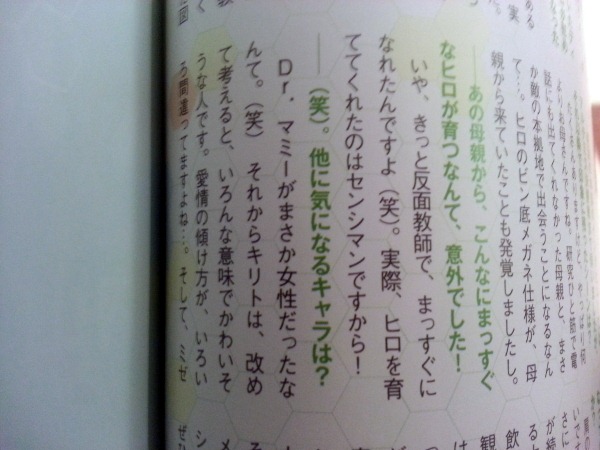 よりね母さんですね。研究ひと筋で電
話にも出てくれなかった母親と、まさ
か敵の本拠地で出会うことになるなん
て…。ヒロのビン底メガネ仕様が、母
親から来ていたことも発覚しましたし。
――あの母親から、こんなにまっすぐ
なヒロが育つなんて、意外でした！
いや、きっと反面教師で、まっすぐに
なれたんですよ（笑）。実際、ヒロを育
ててくれたのはセンシマンですから！
――（笑）。他に気になるキャラは？
Dr．マミーがまさか女性だったな
んて。（笑）　それからキリトは、改め
て考えると、いろんな意味でかわいそ
うな人です。愛情の傾け方が、いろい
ろ間違ってますよね…。そして、ミゼ